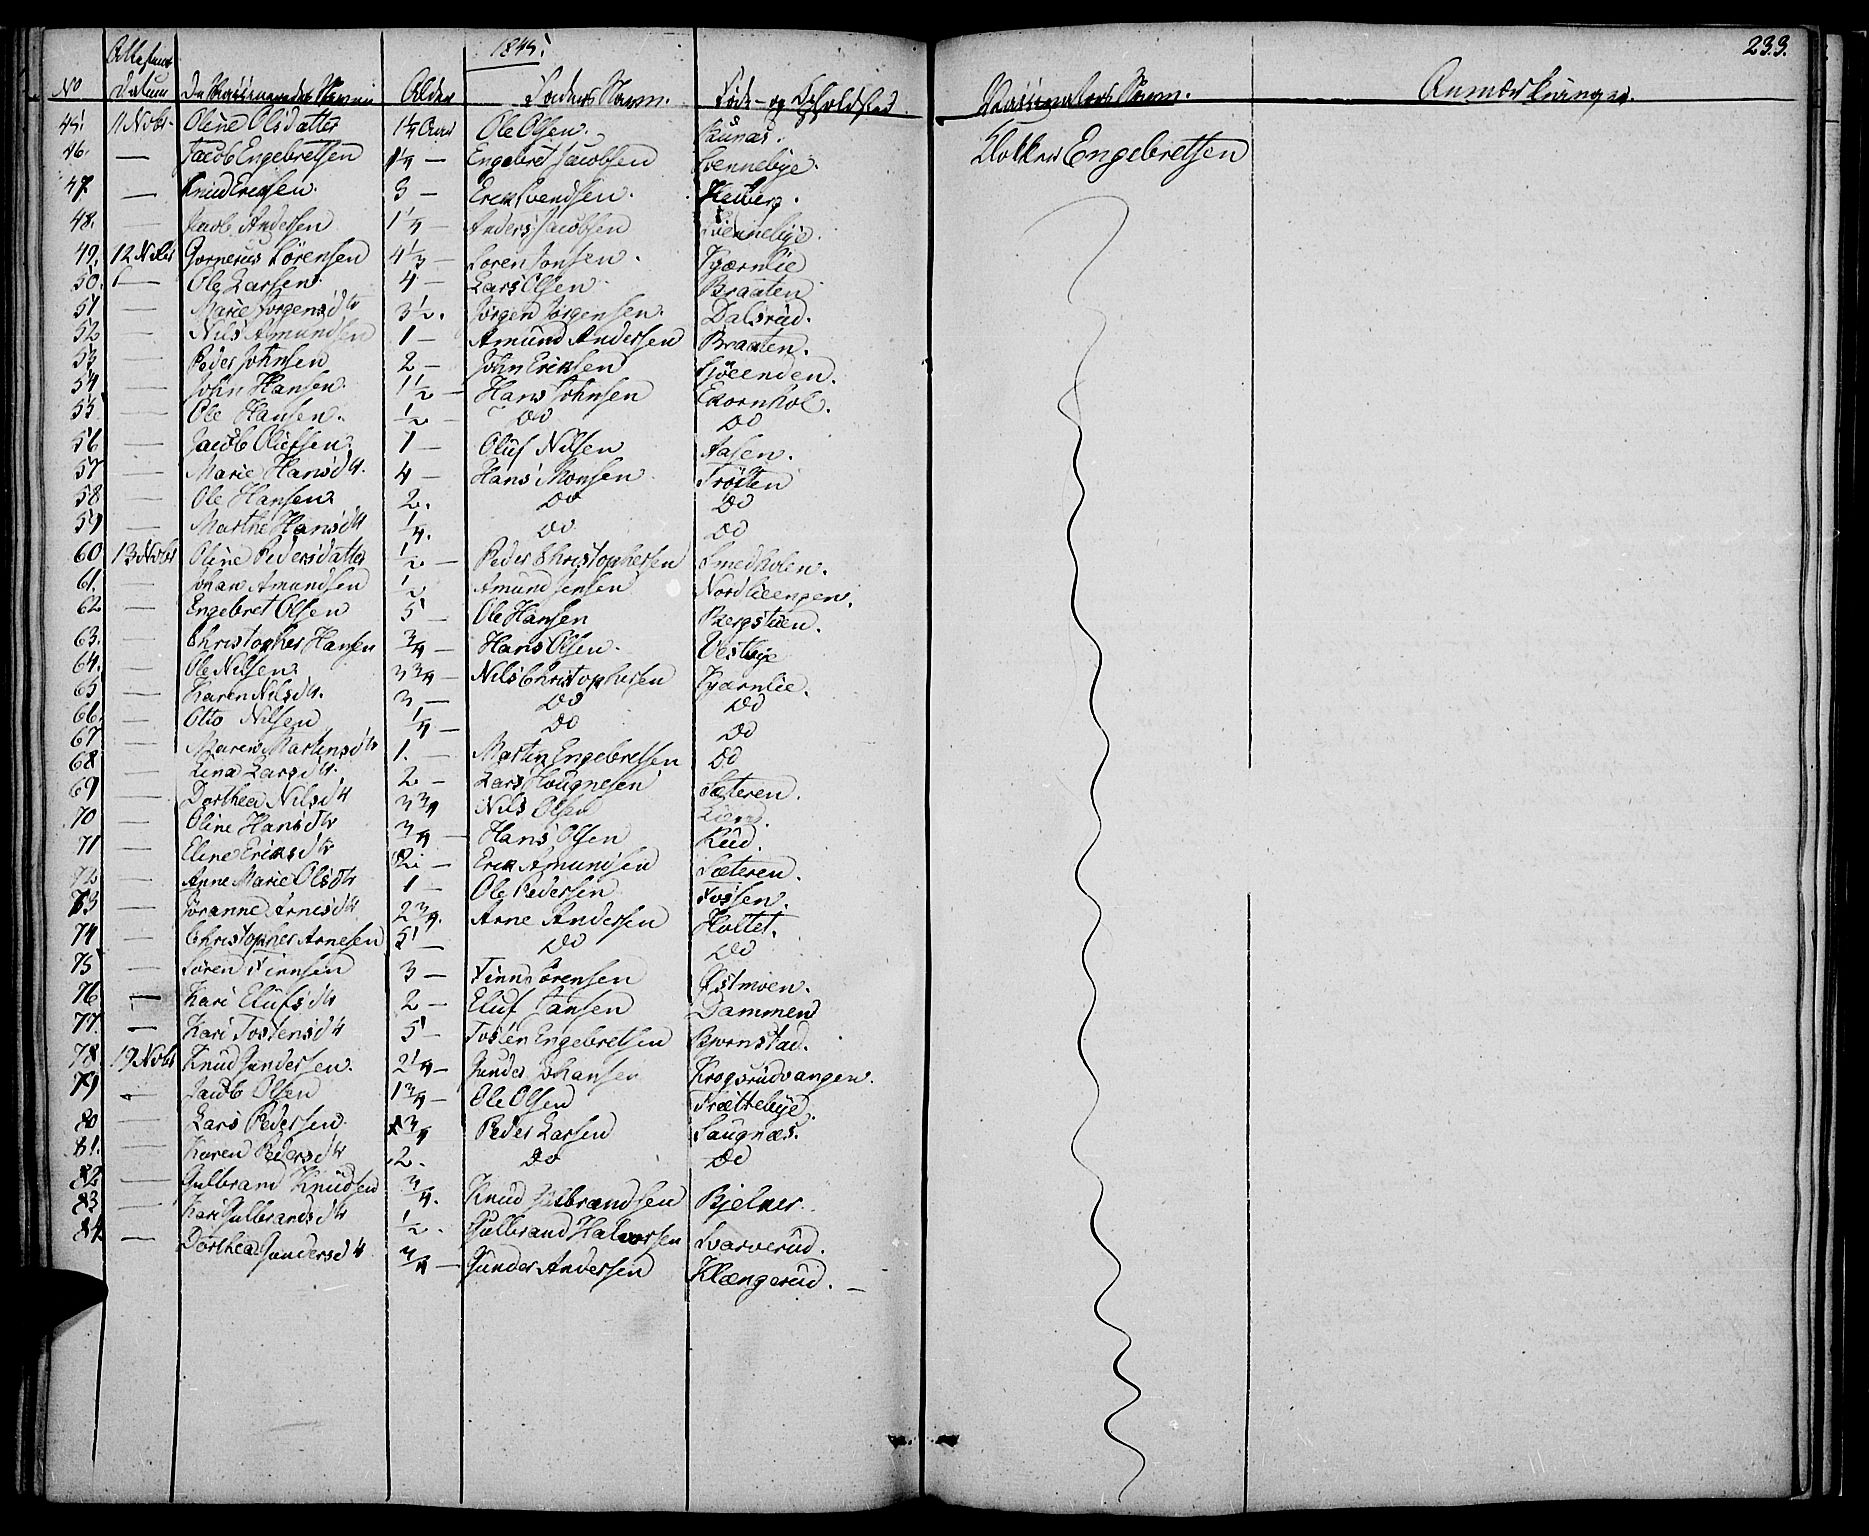 1845.
233.
No Attestens Datum De Vaccineredes Navne Alder Faders Navn. Føde- og Opholdsted. Vaccinateurs Navn. Anmærkninger.
45. 11 Novbr. Oline Olsdatter 1¼ Aar Ole Olsen. Runas. Klokker Engebretsen
46. — Jacob Engebretsen 1¼ — Engebret Jacobsen Svennebye.
47 — Knud Ericksen. 3 — Erik Svendsen.
48. — Jacob Andersen 1¼ — Anders Jacobsen Svennebye.
49. 12 Novbr Gornerius Sörensen 4⅓ — Sören Jonsen. Kjærnlie
50. — Ole Larsen 4 — Lars Olsen Braaten
51 — Marie Jörgensdtr 3½. Jörgen Jörgensen. Dalsrud.
52 — Nils Amundsen 1 — Amund Andersen Braaten.
53 — Peder Johnsen 2 — John Eriksen Sjöeenden.
54 — John Hansen 1½ — Hans Johnsen Ekornhol.
55 — Ole Hansen. ½ — Do Do
56 — Jacob Olufsen 1 — Oluf Nilsen Aasen.
57 — Marie Hansdtr. 4 — Hans Monsen Tröften
58 — Ole Hansen 2. Do Do
59 — Marthe Hansdtr ¼. Do Do
60 13 Novbr Oline Pedersdatter ½ — Peder Christophersen Smedholen.
61. — Johan Amundsen ½ Amund Jensen Nordlieengen.
62 — Engebret Olsen 5 — Ole Hansen Bergstuen.
63. — Christopher Hansen ¾ — Hans Olsen. Vestbye
64. — Ole Nilsen 3¾ — Nils Christophersen Kjærnlie.
65 — Karen Nilsdtr. 3 — Do Do
66. — Otto Nilsen ¼ — Do Do
67 — Maren Martinsdtr 1. — Martin Engebretsen Do
68 — Lina Larsdtr. 2 — Lars Sæteren.
69 — Dorthea Nilsdtr 3¾ Nils Olsen
70 — Oline Hansdtr ¾ — Hans Olsen Rud.
71 — Eline Eriksdtr 2. — Erik Amundsen Sæteren.
72 — Anne Marie Olsdtr 1 — Ole Pedersen Fossen.
73 — Jöranne Arnesdtr 2¾. Arne Andersen Holtet.
74 — Christopher Arnesen 5 — Do Do
75 — Sören Finnsen 3 — Finn Sörensen Østmoen.
76 — Kari Elufsdtr 2 — Eluf Jansen Dammen
77 — Kari Tostensdtr 5 — Tosten Engebretsen Bjornstad.
78. 19 Novbr Knud Gundersen. 2¼ — Gunder Johansen Krogsrudvangen.
79 — Jacob Olsen 1¾ — Ole Olsen Trættebye.
80 — Lars Pedersen ¾ Peder Larsen Saugnæs.
81. — Karen Pedersdtr 2. Do Do
82 — Gulbrand Knudsen ¾. Knud Gulbrandsen Bjelker.
83 — Kari Gulbrandsdtr ½. Gulbrand Halvorsen Svarverud.
84. — Dorthea Gundersdtr ¾ — Gunder Andersen Klængerud. —